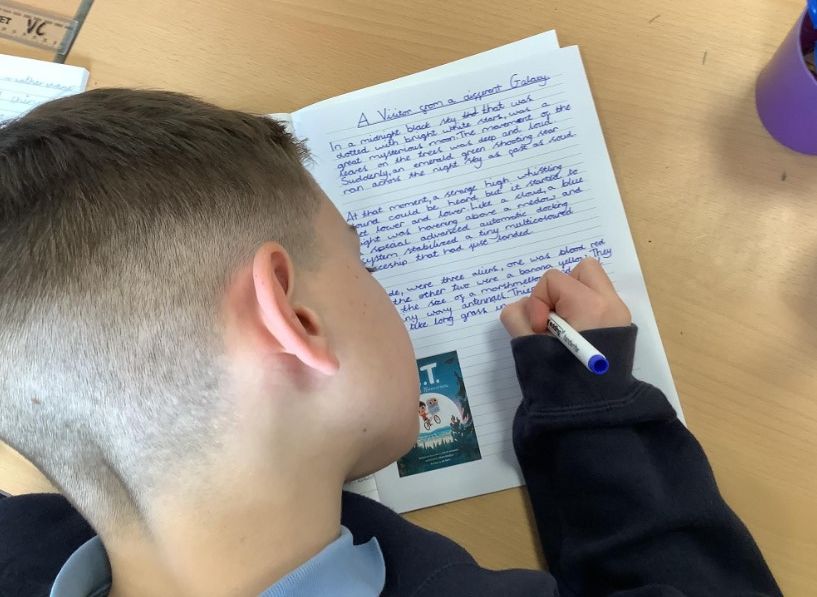 VC
A Visitor from a different Galaxy.
In a midnight black sky that was
dotted with bright white stars, was a
great mysterious moon. The movement of the
leaves on the trees was deep and loud.
Suddenly, an emerald green shooting star
ran across the night sky as fast as soud.
At that moment, a strange high whistling
sound could be heard but it started to
get lower and lower. Like a cloud, a blue
light was hovering above a medow and
special advanced automatic docking
system stabilized a tiny multicoloured
spaceship that had just landed.
were three aliens, one was blood red
the other two were a banana yellow. They
the size of a marshmellow
wavy antennaes.
like long grass in
.T.